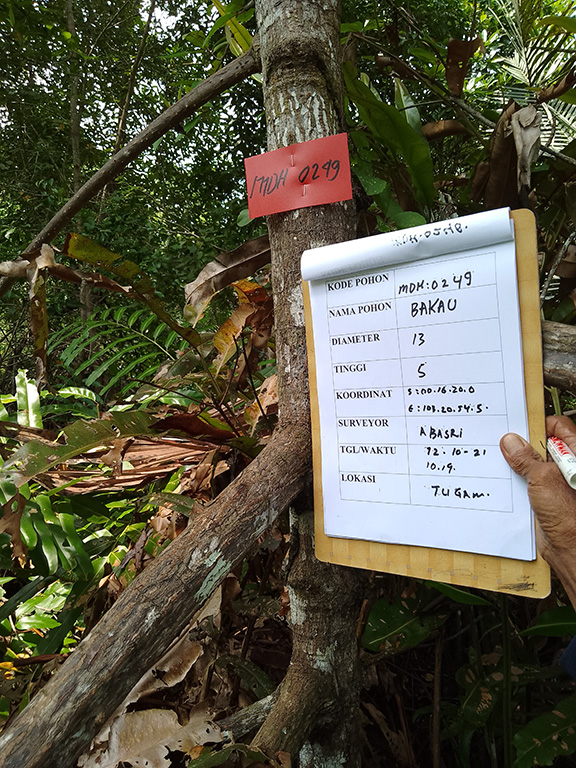 MDH 0249
MDH.0548.
KODE POHON MDH:0249
NAMA POHON BAKAU
DIAMETER 13
TINGGI 5
KOORDINAT S:00.16.20.0
E:103.20.54.5.
SURVEYOR ABASRI
TGL/WAKTU 12-10-21
10.19.
LOKASI TUGAM.